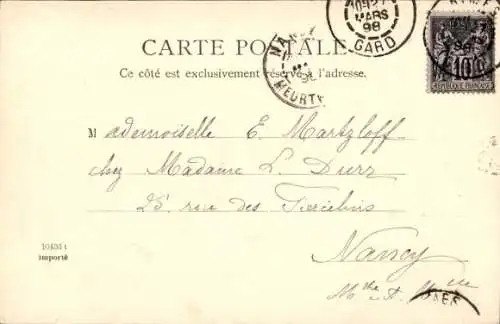 CARTE POSTALE
Ce côté est exclusivement réservé à l'adresse.
NANCY
MEURTE
MARS
98
GARD
10
REPUBLIQUE FRANÇAISE
Mademoiselle E. Martzloff
chez Madame L. Durr
25 rue des Tiercelins
Nancy
Mthe et
10433 t
importé